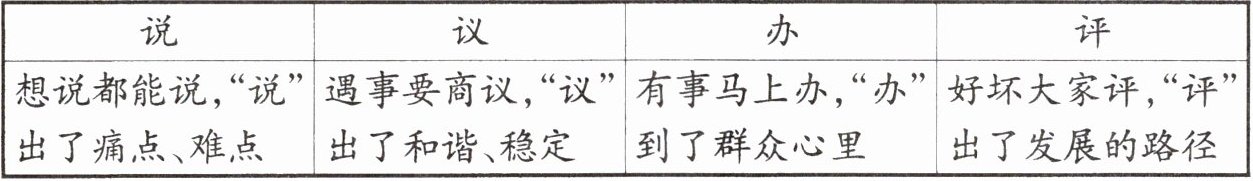 说 议 办 评
想说都能说，“说” 遇事要商议，“议” 有事马上办，“办” 好坏大家评，“评”
出了痛点、难点 出了和谐、稳定 到了群众心里 出了发展的路径